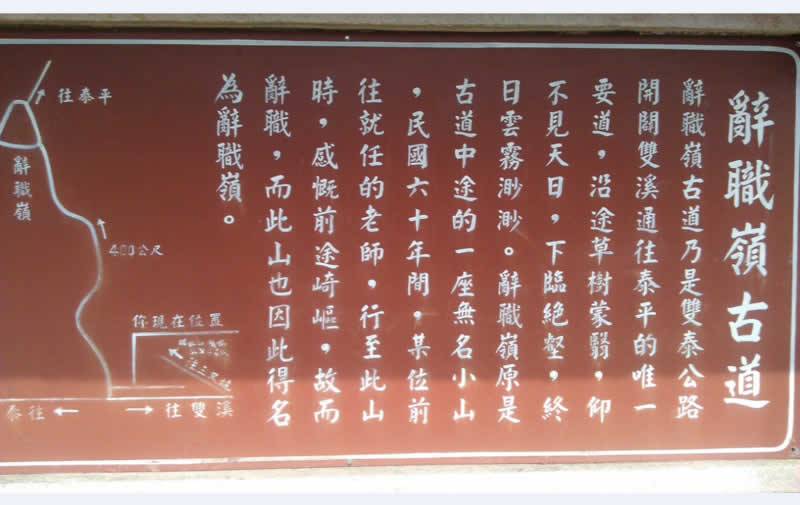 辭職嶺古道
辭職嶺古道乃是雙泰公路
開闢雙溪通往泰平的唯一
要道，沿途草樹蒙翳，仰
不見天日，下臨絕壑，終
日雲霧渺渺。辭職嶺原是
古道中途的一座無名小山
，民國六十年間，某位前
往就任的老師，行至此山
時，感慨前途崎嶇，故而
辭職，而此山也因此得名
為辭職嶺。
往泰平
辭職嶺
400公尺
你現在位置
泰往
往雙溪